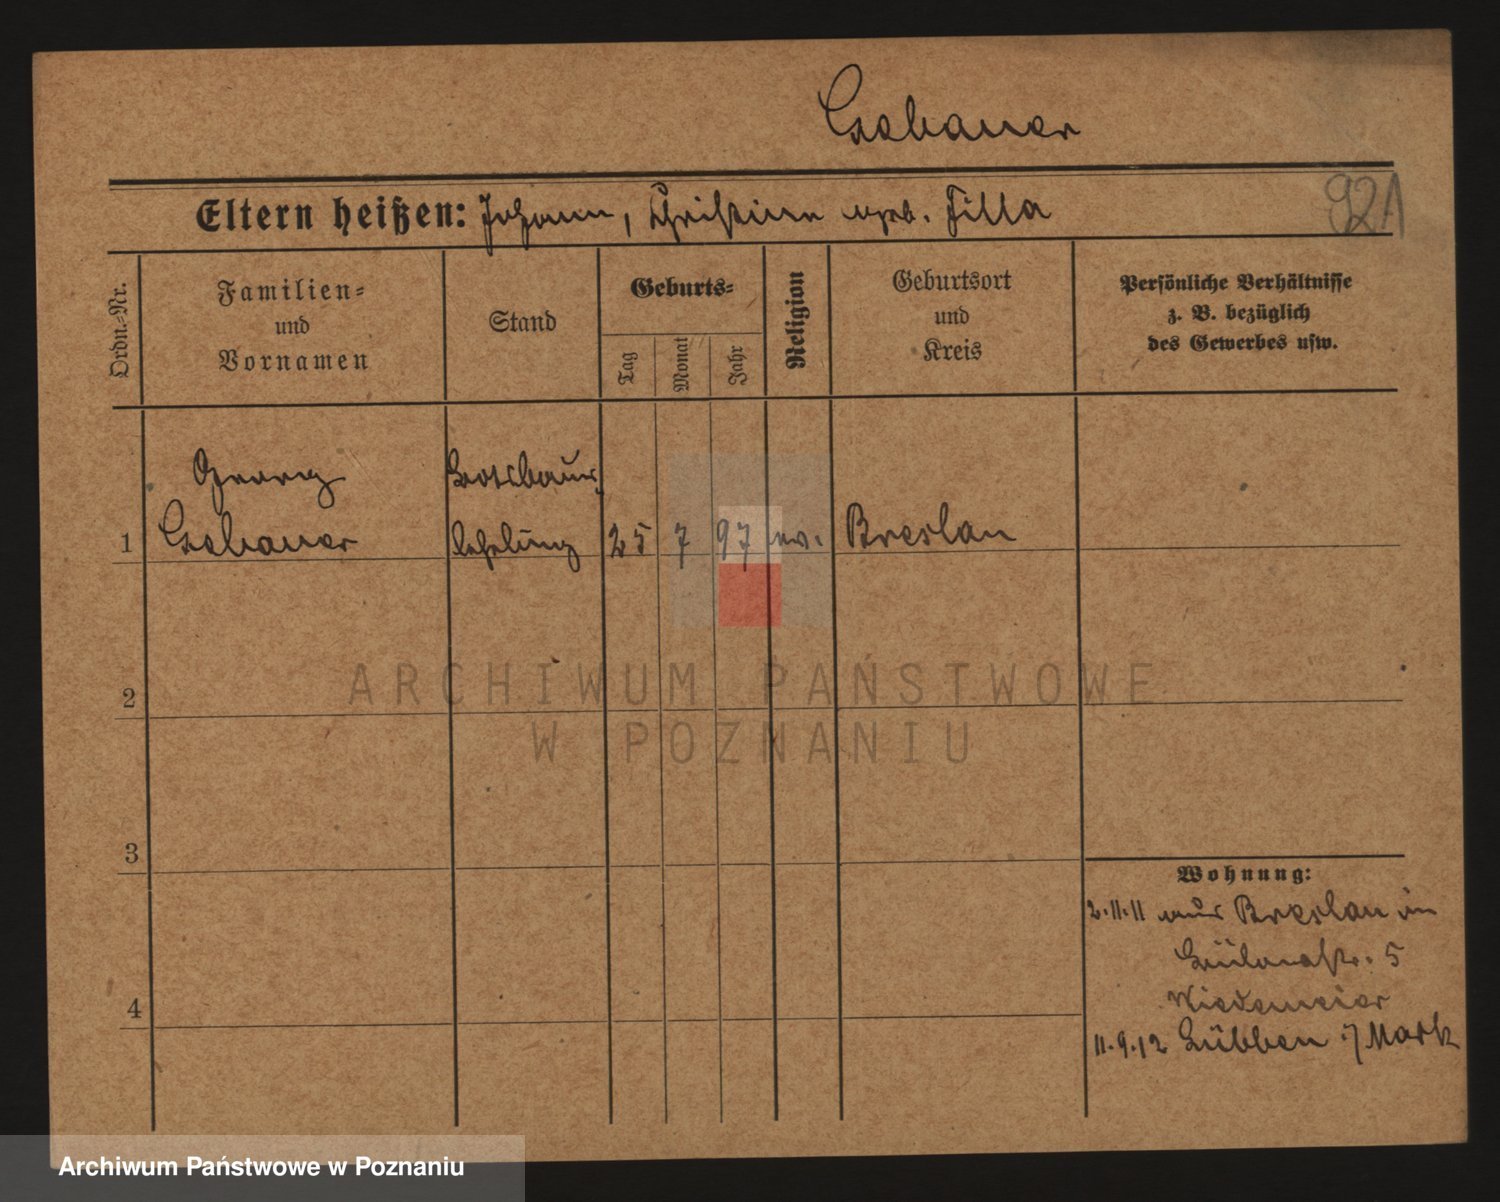 Gebauer
921
Eltern heißen: Johann, Christine geb. Filla
Ordn.-Nr.
Familien-
und
Vornamen
Stand
Geburts-
Tag
Monat
Jahr
Religion
Geburtsort
und
Kreis
Persönliche Verhältnisse
z. B. bezüglich
des Gewerbes usw.
Georg
1 Gebauer lehrling 25 7 97 ev. Breslau
2
3
4
ARCHIWUM PAŃSTWOWE
W POZNANIU
Wohnung:
2.11.11 aus Breslau in
5
Niedemeier
11.9.12 Lübben /Mark
Archiwum Państwowe w Poznaniu